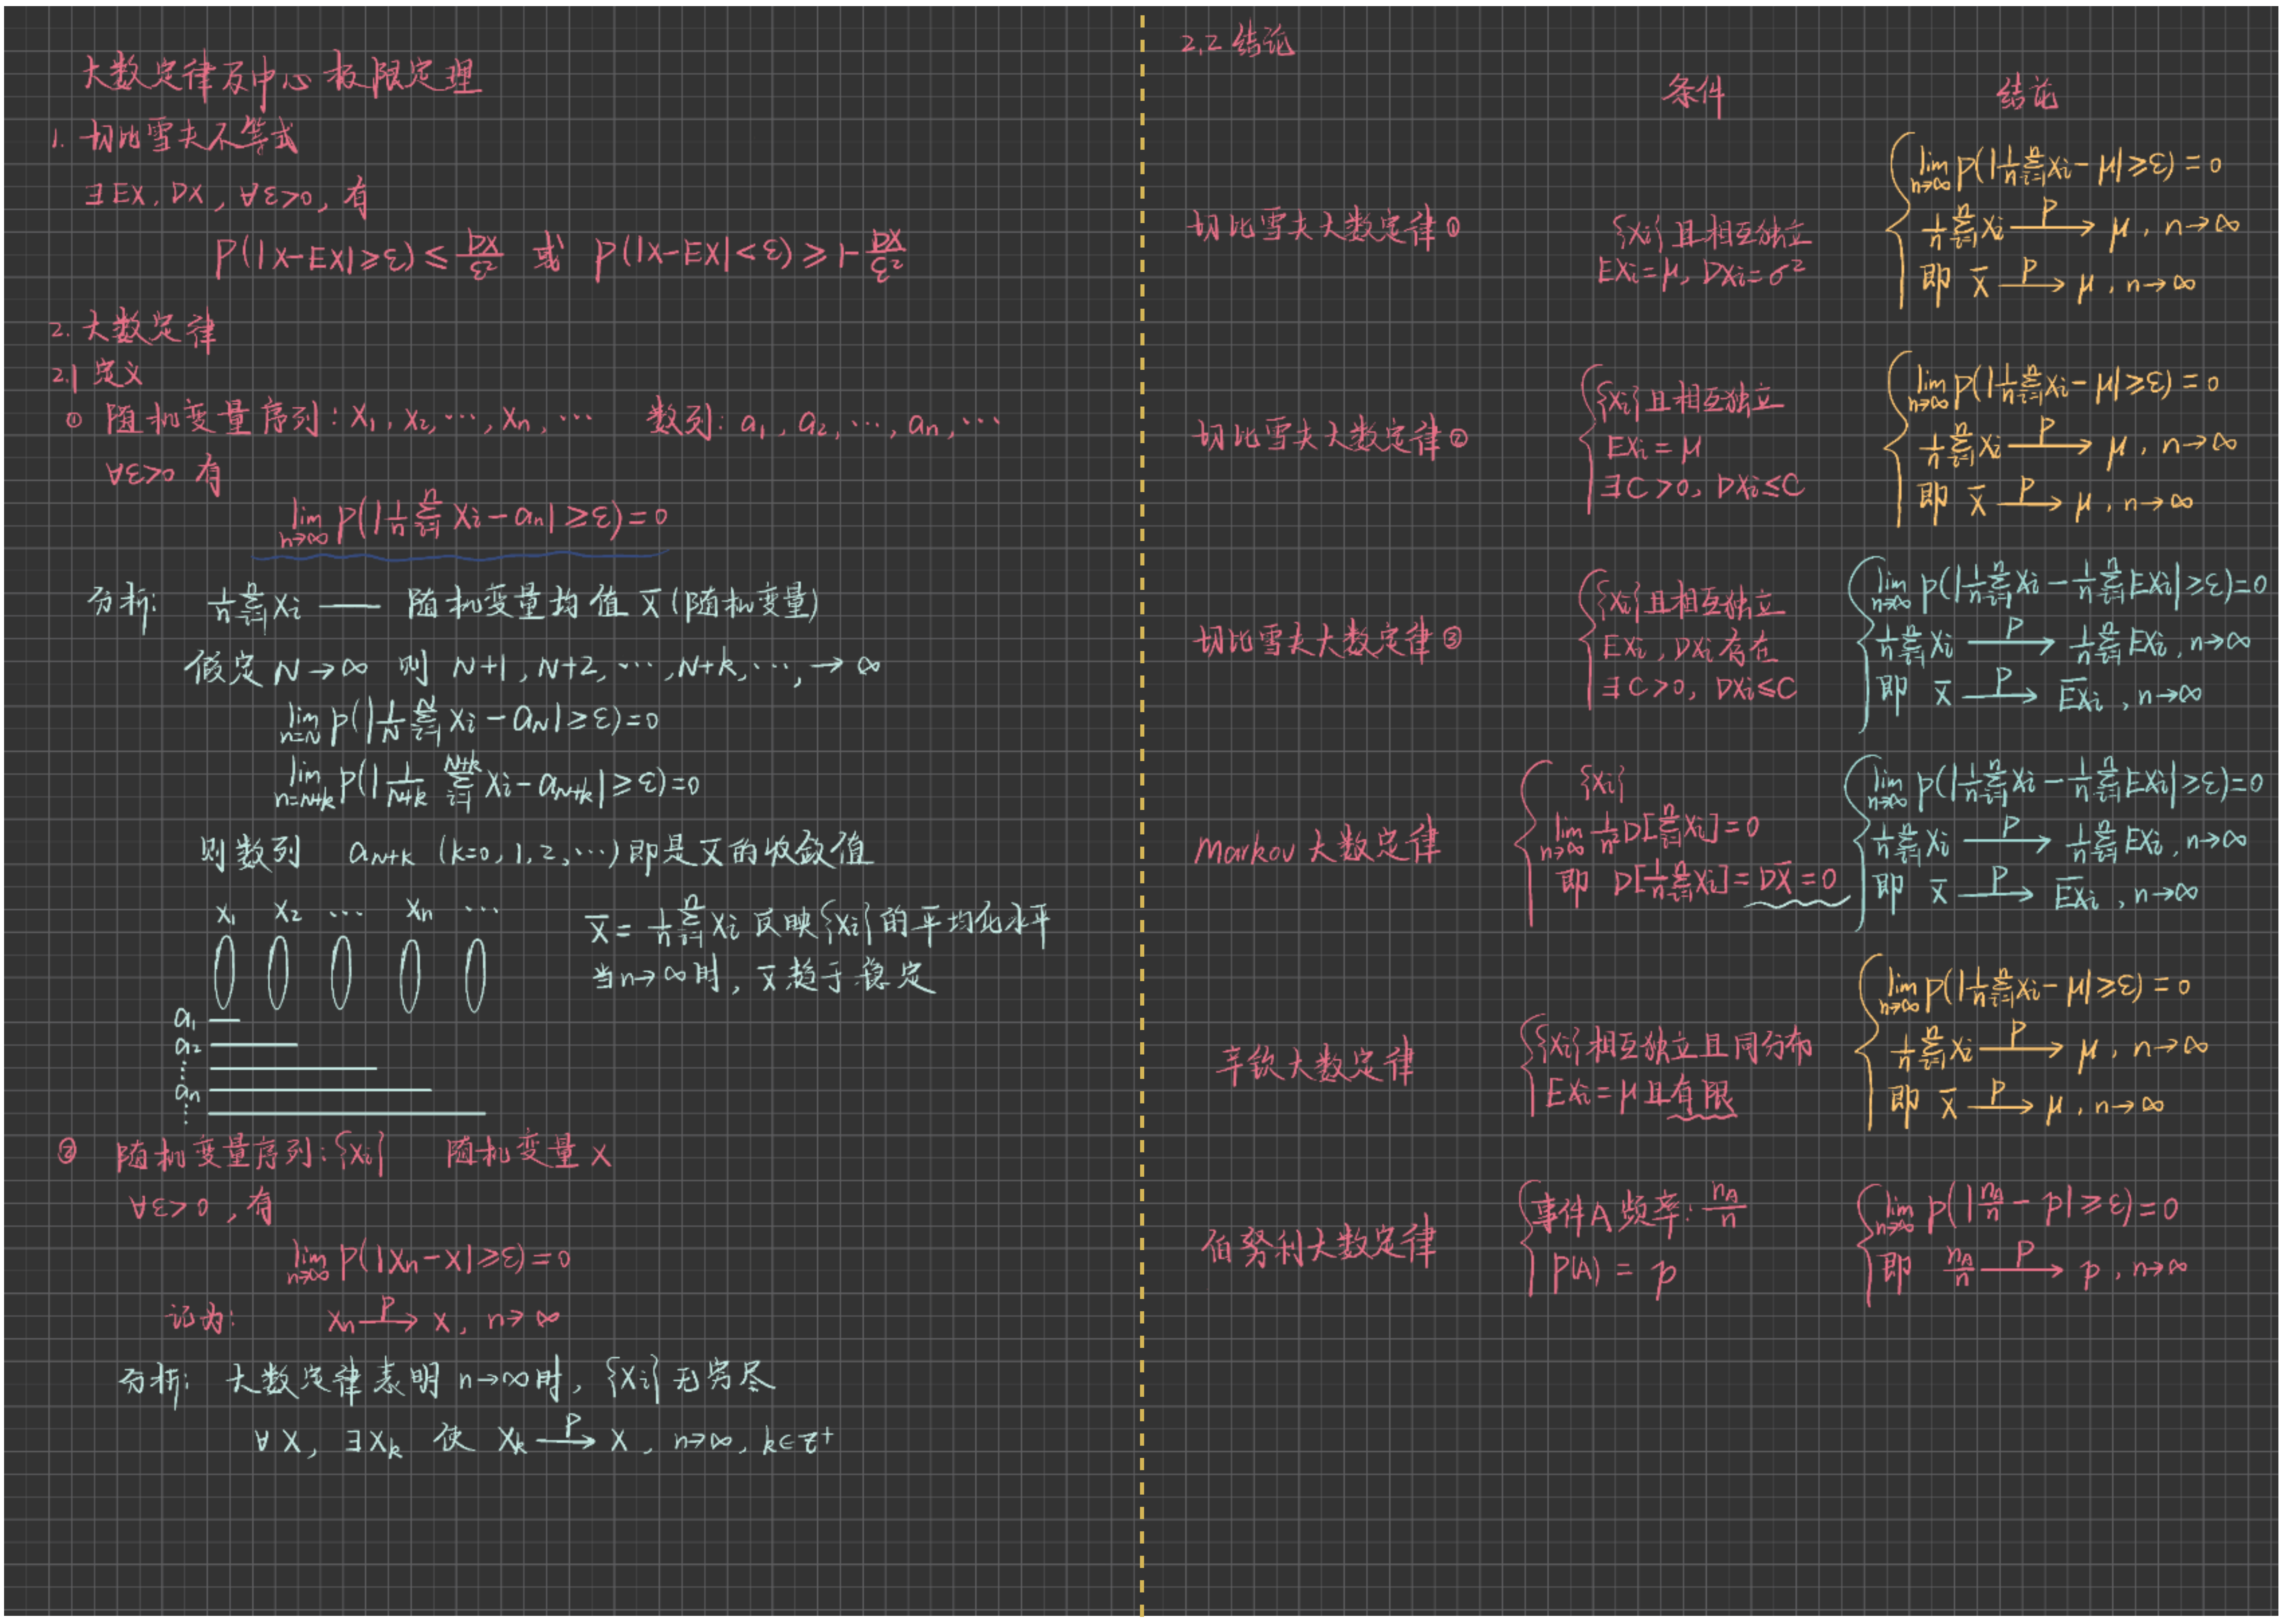 大数定律及中心极限定理
1. 切比雪夫不等式
∃EX, DX, ∀ε>0, 有
P(|X-EX|≥ε) ≤ DX/ε² 或 P(|X-EX|<ε) ≥ 1-DX/ε²
2. 大数定律
2.1 定义
① 随机变量序列: X₁, X₂, …, Xₙ, … 数列: a₁, a₂, …, aₙ, …
∀ε>0 有
lim_{n→∞} P(|1/n Σ_{i=1}^{n} Xi - aₙ| ≥ε)=0
分析: 1/n Σ_{i=1}^{n} Xi —— 随机变量均值 X̄ (随机变量)
假定 N→∞ 则 N+1, N+2, …, N+k, …, → ∞
lim_{n=N} P(|1/N Σ_{i=1}^{N} Xi - a_N| ≥ε)=0
lim_{n=N+k} P(|1/(N+k) Σ_{i=1}^{N+k} Xi - a_{N+k}| ≥ε)=0
则数列 a_{N+k} (k=0, 1, 2, …) 即是X̄的收敛值
X₁ X₂ … Xₙ …
X̄ = 1/n Σ_{i=1}^{n} Xi 反映{Xi}的平均化水平
当n→∞时, X̄趋于稳定
a₁
a₂
⋮
aₙ
⋮
② 随机变量序列: {Xi} 随机变量 X
∀ε>0, 有
lim_{n→∞} P(|Xₙ-X|≥ε)=0
记为: Xₙ —P→ X, n→∞
分析: 大数定律表明 n→∞时, {Xi}无穷尽
∀X, ∃X_k 使 X_k —P→ X, n→∞, k∈Z⁺
2.2 结论
条件 结论
切比雪夫大数定律①
{Xi}且相互独立
EXi=μ, DXi=σ²
lim_{n→∞} P(|1/n Σ_{i=1}^{n} Xi - μ|≥ε) = 0
1/n Σ_{i=1}^{n} Xi —P→ μ, n→∞
即 X̄ —P→ μ, n→∞
切比雪夫大数定律②
{Xi}且相互独立
EXi = μ
∃C>0, DXi≤C
lim_{n→∞} P(|1/n Σ_{i=1}^{n} Xi - μ|≥ε) = 0
1/n Σ_{i=1}^{n} Xi —P→ μ, n→∞
即 X̄ —P→ μ, n→∞
切比雪夫大数定律③
{Xi}且相互独立
EXi, DXi存在
∃C>0, DXi≤C
lim_{n→∞} P(|1/n Σ_{i=1}^{n} Xi - 1/n Σ_{i=1}^{n} EXi|≥ε)=0
1/n Σ_{i=1}^{n} Xi —P→ 1/n Σ_{i=1}^{n} EXi, n→∞
即 X̄ —P→ E̅X̅i, n→∞
Markov 大数定律
{Xi}
lim_{n→∞} 1/n² D[Σ_{i=1}^{n} Xi]=0
即 D[1/n Σ_{i=1}^{n} Xi] = DX̄ = 0
lim_{n→∞} P(|1/n Σ_{i=1}^{n} Xi - 1/n Σ_{i=1}^{n} EXi|≥ε)=0
1/n Σ_{i=1}^{n} Xi —P→ 1/n Σ_{i=1}^{n} EXi, n→∞
即 X̄ —P→ E̅X̅i, n→∞
辛钦大数定律
{Xi}相互独立且同分布
EXi=μ且有限
lim_{n→∞} P(|1/n Σ_{i=1}^{n} Xi - μ|≥ε) = 0
1/n Σ_{i=1}^{n} Xi —P→ μ, n→∞
即 X̄ —P→ μ, n→∞
伯努利大数定律
事件A 频率: n_A/n
P(A) = p
lim_{n→∞} P(|n_A/n - p|≥ε)=0
即 n_A/n —P→ p, n→∞